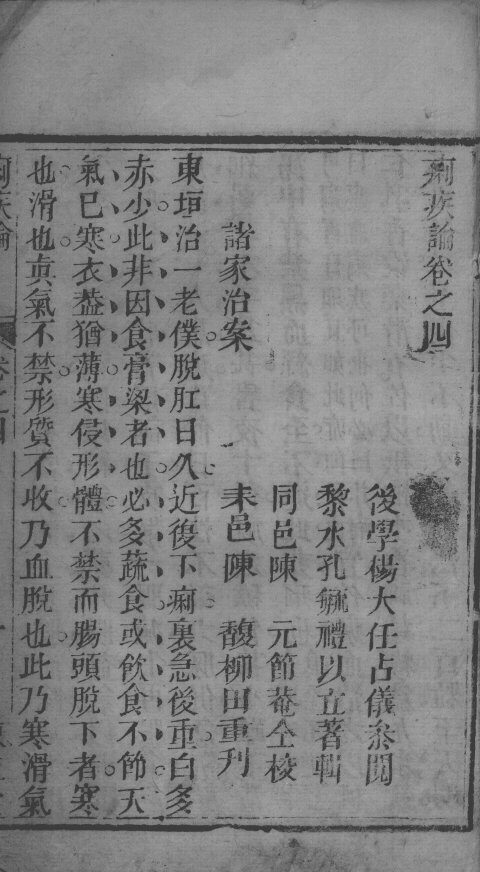 痢疾論卷之四
後學傷大任占儀叅閱
黎水孔毓禮以立著輯
同邑陳 元節菴仝校
耒邑陳 馥柳田重刋
諸家治案
東垣治一老僕脫肛日久近復下痢裏急後重白多
赤少此非因食膏梁者也必多蔬食或飲食不節天
氣巳寒衣葢猶薄寒侵形體不禁而腸頭脫下者寒
也滑也眞氣不禁形質不收乃血脫也此乃寒滑氣
痢疾論
卷之四